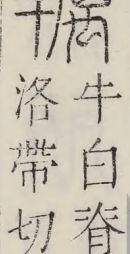 牛白脊
洛帶切